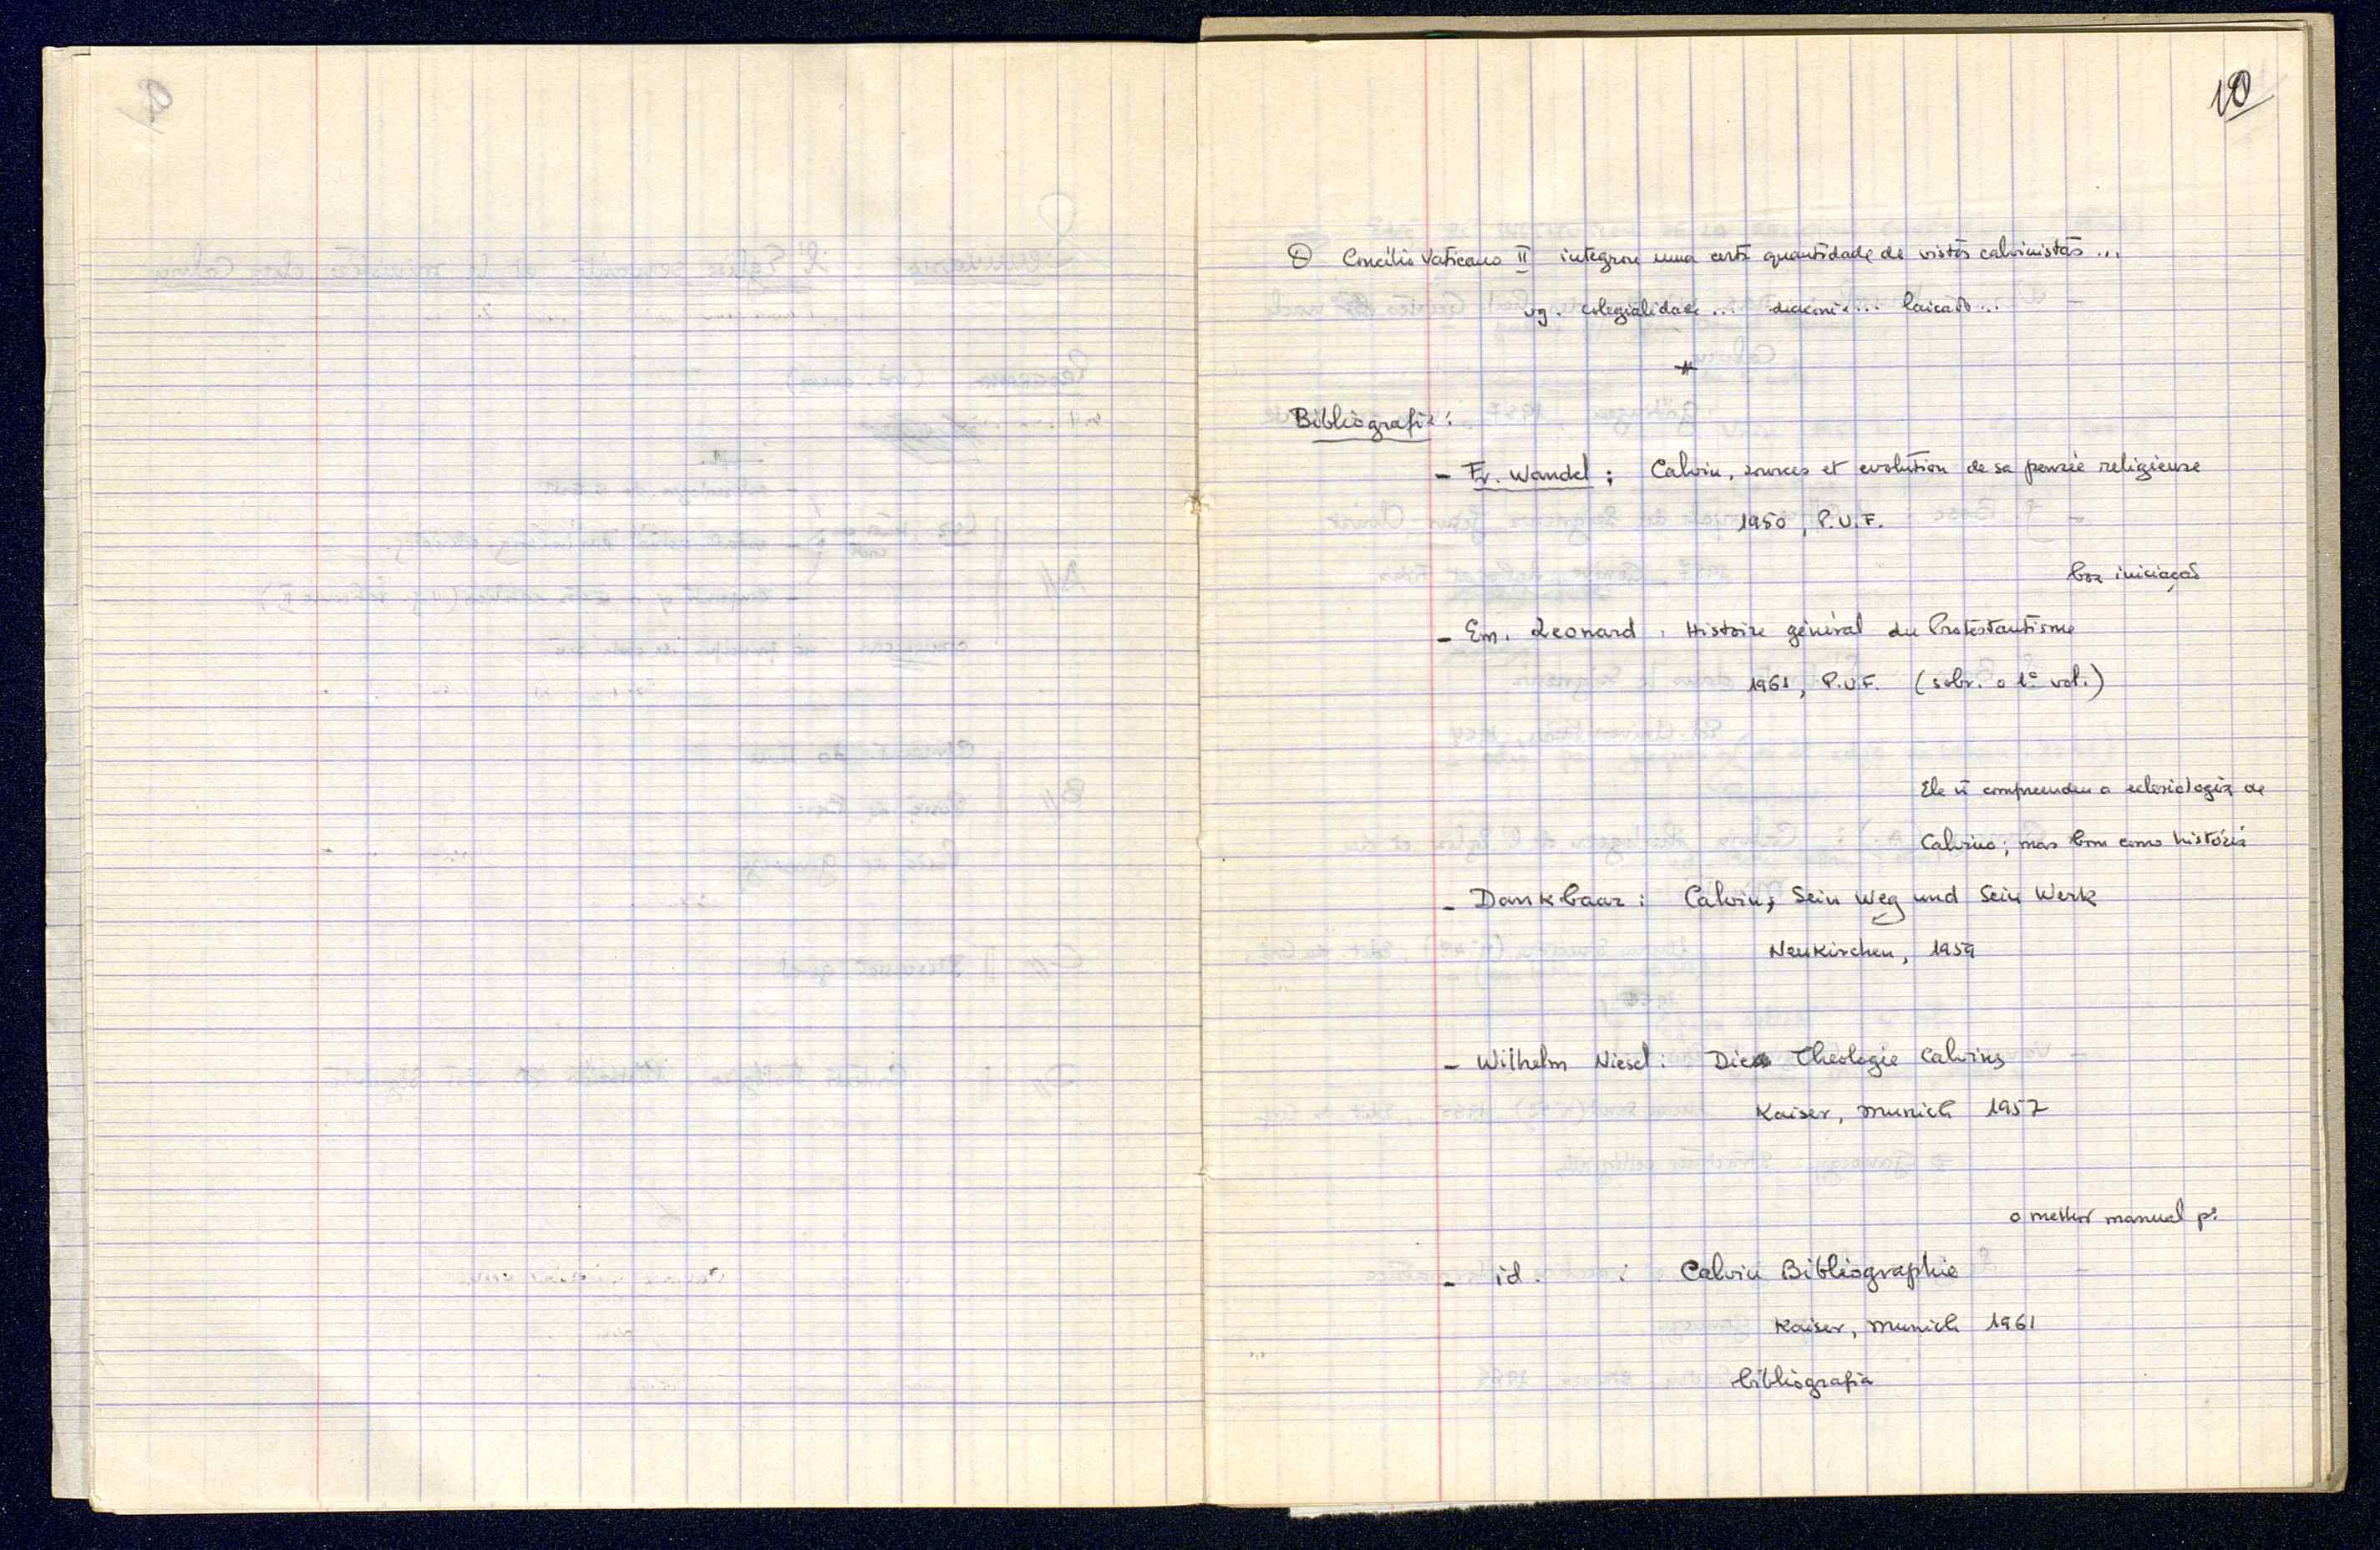 10
O Concílio Vaticano II integrou uma certa quantidade de vistas calvinistas...
vg. colegialidade... diaconia... laicado...
Bibliografia:
- Fr. Wandel: Calvin, sources et evolution de sa pensée religieuse
1950, P.U.F.
boa iniciação
- Em. Leonard: Histoire général du Protestantisme
1961, P.U.F. (sobr. o 1º vol.)
Ele ñ compreendeu a eclesiologia de
Calvino; mas bom como história
- Dankbaar: Calvin, Sein Weg und Sein Werk
Neukirchen, 1959
- Wilhelm Niesel: Die Theologie Calvins
Kaiser, Munich 1957
o melhor manual
- id. : Calvin Bibliographie
Kaiser, Munich 1961
bibliografia